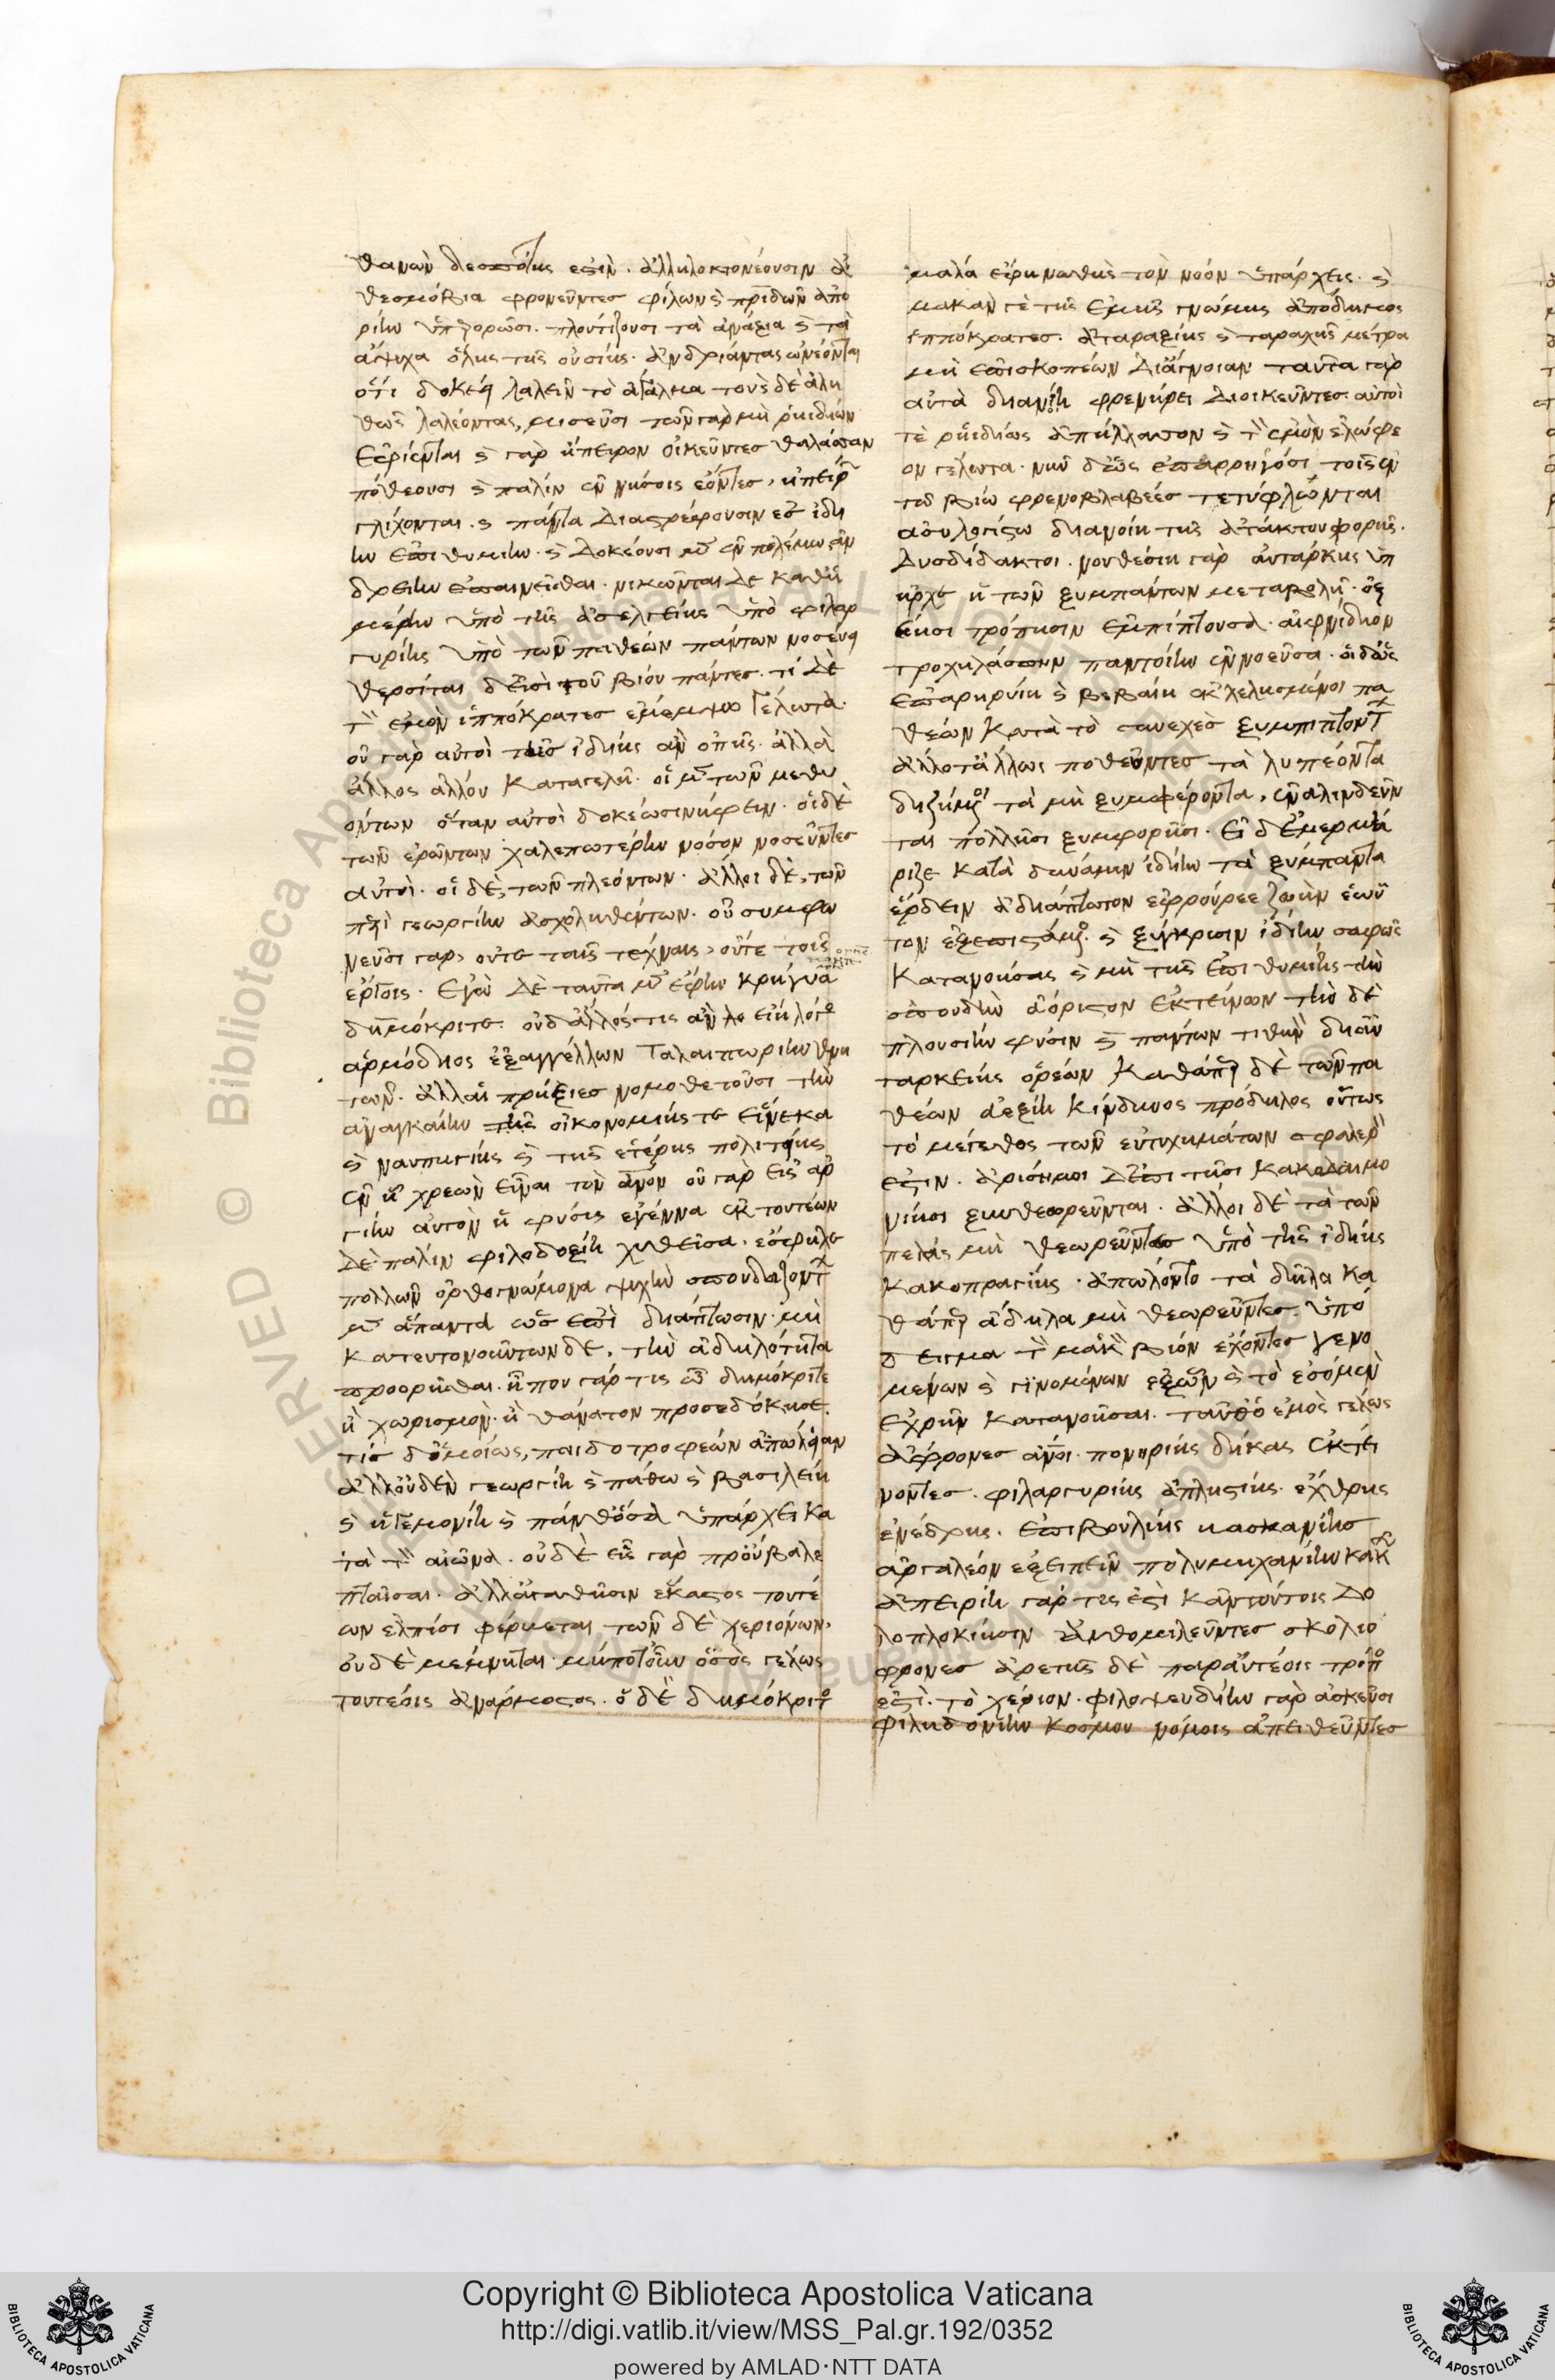 θανὼν δεσπότης ἐστὶν. ἀλληλοκτονέουσιν ἀ
θεσμόβια φρονεῦντες φίλων καὶ πατρίδων ἀπο
ρίην ὑπερορῶσι. πλουτίζουσι τὰ ἀνάξια καὶ τὰ
ἄψυχα ὅλης τῆς οὐσίης. ἀνδριάντας ὠνέονται
ὅτι δοκέει λαλεῖν τὸ ἄγαλμα τοὺς δὲ ἀλη
θῶς λαλέοντας, μισεῦσι τῶν γὰρ μὴ ῥηιδίων
ἐφίενται καὶ γὰρ ἤπειρον οἰκεῦντες θαλάσσαν
πόθεουσι καὶ παλὶν ἐν νήσοις ἐόντες, ἠπείρ
γλίχονται. καὶ πάντα διαστρέφουσιν ἐς ἰδί
ην ἐπιθυμίην. καὶ δοκέουσι μὲν ἐν πολέμω ἀν
δρείην ἐπαινεῖσθαι. νικῶνται δε καθ' ἡ
μέρην ὑπὸ τῆς ἀσελγείης ὑπὸ φιλαρ
γυρίης ὑπὸ τῶν παθέων πάντων νοσέου
θερσίται δ' εἰσὶ τοῦ βίου πάντες. τί δὲ
τὸν ἐμὸν ἱππόκρατες ἐμέμψω γέλωτα.
οὐ γὰρ αὐτοὶ τῆς ἰδίης ἀν οπῆς. ἀλλὰ
ἄλλος ἄλλου καταγελῆ. οἱ μὲν τῶν μεθυ
όντων ὅταν αὐτοὶ δοκέωσι νήφειν. οἱ δὲ
τῶν ἐρώντων χαλεπωτέρην νοσον νοσεῦντες
αὐτοὶ. οἱ δὲ, τῶν πλεόντων. ἄλλοι δὲ, τῶν
περὶ γεωργίην ἀσχοληθέντων. οὐ συμφω
νεῦσι γαρ, οὔτε ταῖς τέχναις, οὔτε τοῖς
ἔργοις. Ἐγὼ δὲ ταῦτα μὲν ἔφην κρήγυα
δημόκριτε. οὐδ' ἄλλος τις ἀν λο εἴη λόγος
ἁρμόδιος ἐξαγγέλλων ταλαιπωρίην θνη
τῶν. ἀλλ' αἱ πρήξιες νομοθετοῦσι τὴν
ἀναγκαίην τῆς οἰκονομίης τε εἵνεκα
καὶ ναυπηγίης καὶ τῆς ἑτέρης πολιτείης
ἐν ᾗ χρεὼν εἶναι τὸν ἄνον οὐ γὰρ εἰς ἀρ
γίην αὐτὸν ἡ φύσις ἐγέννα ἐκ τουτέων
δὲ παλὶν φιλοδοξίη χυθεῖσα. ἐσφηλε
πολλῶν ὀρθογνώμονα ψυχὴν σπουδαζόντων
μὲν ἅπαντα ὡς ἐπὶ διαπτώσιν. μὴ
κατευτονούντων δε, τὴν ἀδηλότητα
προορῆσθαι. ἤπου γάρ τις ὦ δημόκριτε
ἢ χωρισμὸν. ἢ θάνατον προσεδόκησε.
τίς δ' ὁμοίως, παιδοτροφέων ἀπωλειαν
ἀλλ' οὐδὲν γεωργίη καὶ πάθω καὶ βασιλείη
καὶ ἡγεμονίη καὶ πάνθ' ὅσα ὑπάρχει κα
τὰ τὸν αἰῶνα. οὐδὲ εἷς γὰρ προύβαλε
πταῖσαι. ἀλλ' ἀγαθῇσιν ἕκαστος τουτέ
ων ἐλπίσι φέρβεται τῶν δὲ χεριόνων,
οὐδὲ μέμνηται. μήποτ' οὖν ὁ σὸς γέλως
τουτέοις ἀνάρμοστος. ὁ δὲ δημόκριτος
μαλά εἶ βραδὺς τὸν νοόν ὑπάρχεις. καὶ
μακὰν γὲ τῆς ἐμῆς γνώμης ἀπόδημος
ἱππόκρατες. ἀταραξίης καὶ ταραχῆς μέτρα
μὴ ἐπισκοπέων δι' ἄγνοιαν ταῦτα γὰρ
αὐτὰ διανοίη φρενήρει διοικεῦντες αὐτοὶ
τὲ ρηιδίως ἀπήλλασσον καὶ τὸν ἐμὸν ἐλώφε
ον γέλωτα. νῦν δὲ ὡς ἐπ' ἀρρηγόσι τοῖς ἐν
τῶ βίω φρενοβλαβέες τετύφλωνται
ἀσυλογίστω διανοίη τῆς ἀτάκτου φορῆς.
δυσδίδακτοι. νουθεσίη γὰρ αὐτάρκης ὑπ
ῆρχε ἡ τῶν ξυμπάντων μεταβολὴ. ὀξ
είησι τρόπησιν ἐμπίπτουσα. αἰφνίδιον
τροχηλάσσην παντοίην ἐννοεῦσα. οἱ δ' ὡς
ἐπ' ἀρηρυίη καὶ βεβαίη ἐκλελησμένοι πα
θεών κατὰ τὸ συνεχὲς ξυμπιπτόντων
ἀλλοτ' ἄλλως ποθεῦντες τὰ λυπέοντα
διζήμενοι τὰ μὴ ξυμφέροντα, ἐναλινδεῦν
ται πολλῇσι ξυμφορῇσι. Εἰ δ' ἐμερμή
ριζε κατὰ δυνάμιν ἰδίην τὰ ξύμπαντα
ἔρδειν ἀδιάπτωτον ἐφρούρεε ζωὴν ἑωυ
τον ἐξεπιστάμενος. καὶ ξύγκρισιν ἰδίην σαφῶς
κατανοήσας καὶ μὴ τῆς ἐπιθυμίης τὴν
σπουδὴν ἀόριστον ἐκτείνων τὴν δὲ
πλουσίην φύσιν καὶ παντων τιθὴν δι' αὐ
ταρκείης ὁρέων καθάπερ δὲ τῶν πα
θέων ἀεξίη κίνδυνος πρόδηλος οὕτως
τὸ μέγεθος τῶν εὐτυχημάτων σφαλερὸν
ἐστιν. ἀρίσημοι δ' ἐπὶ τῇσι κακοδαιμο
νίησι ξυνθεωρεῦνται. ἄλλοι δὲ τὰ τῶν
πελας μὴ θεωρεῦντες ὑπὸ τῆς ἰδίης
κακοπραγίης. ἀπώλοντο τὰ δῆλα κα
θάπερ ἄδηλα μὴ θεωρεῦντες ὑπό
δειγμα τὸν μακρὸν βιόν ἔχοντες γενο
μένων καὶ γινομένων ἐξ ὧν καὶ τὸ ἐσόμενον
ἐχρῆν κατανοῆσαι. ταῦθ' ὁ ἐμὸς γέλως
ἄφρονες ἄνοι. πονηρίης δίκας ἐκτεί
νοντες. φιλαργυρίης ἀπληστίης. ἔχθρης
ἐνέδρης. ἐπιβουλίης βασκανίης
ἀργαλεόν ἐξειπεῖν πολυμηχανίην κακῶν
ἀπειρίη γάρ τις ἐστὶ κἀν τούτοις δο
λοπλοκίησιν ἀνθομιλεῦντες σκολιο
φρονες ἀρετῆς δὲ παρ' αὐτέοις τρόπος
ἐστὶ. τὸ χέριον. φιλοψευδίην γὰρ ἀσκεῦσι
φιληδονίην κοσμου νόμοις ἀπειθεῦντες
Copyright © Biblioteca Apostolica Vaticana
http://digi.vatlib.it/view/MSS_Pal.gr.192/0352
powered by AMLAD·NTT DATA